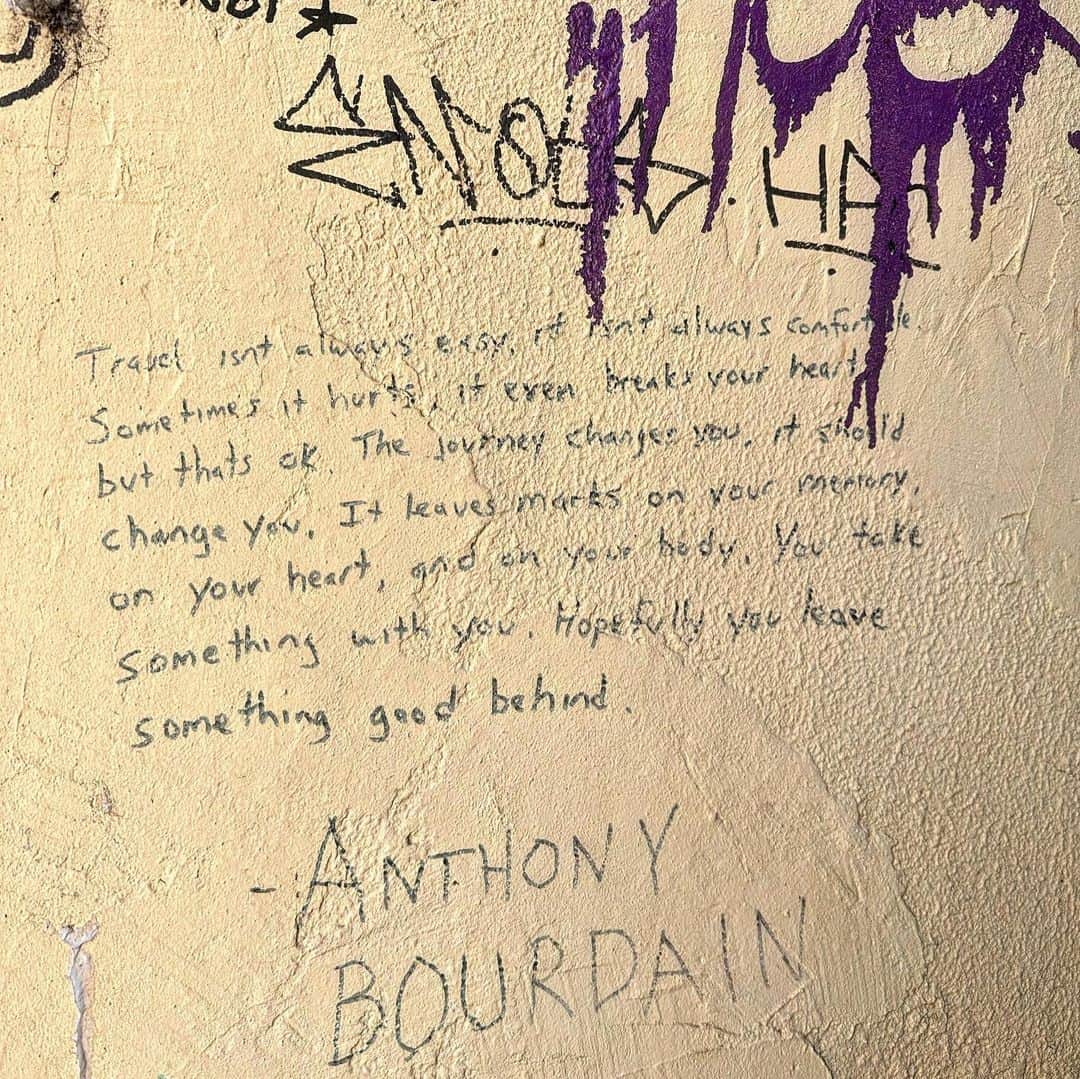 Travel isnt always easy, it isnt always comfortable.
Sometimes it hurts, it even breaks your heart
but thats ok. The journey changes you, it should
change you. It leaves marks on your memory,
on your heart, and on your body. You take
something with you. Hopefully you leave
something good behind.
- ANTHONY
BOURDAIN